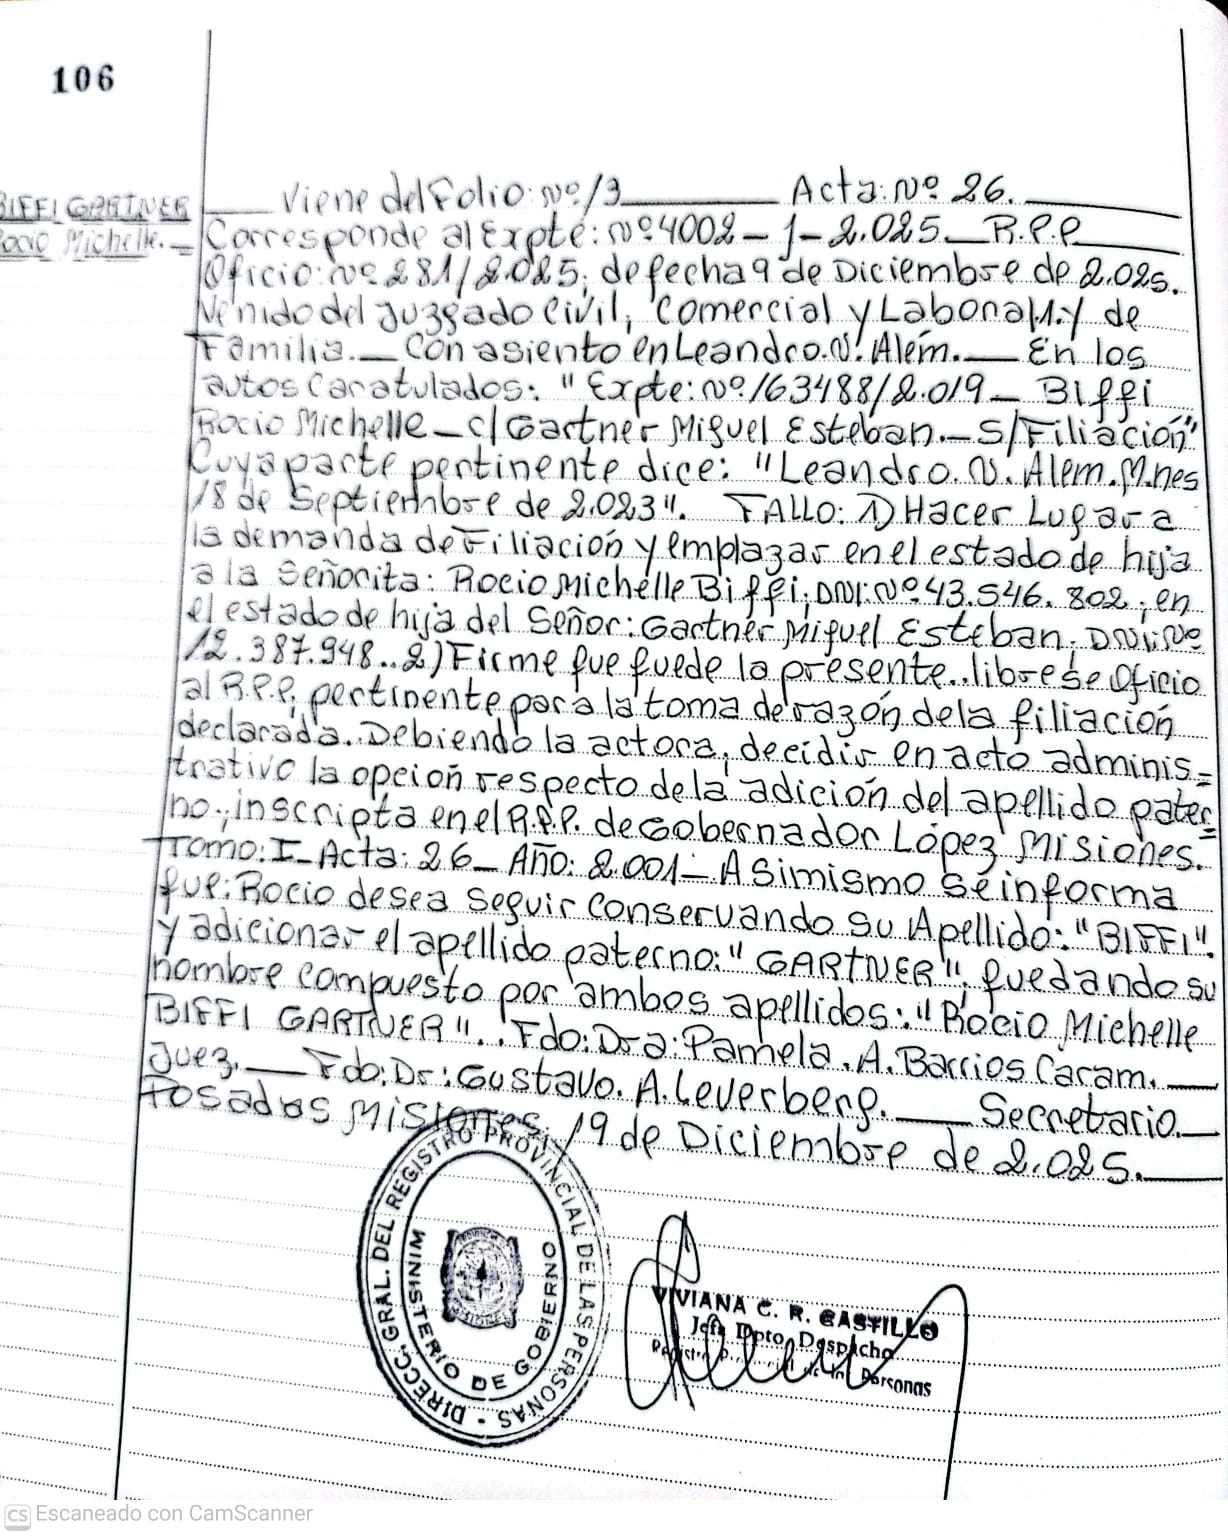 106
BIFFI GARTNER
Rocio Michelle._
Viene del Folio: Nº 13 Acta: Nº 26.
Corresponde al Expte: Nº 4002-1-2.025_ R.P.P
Oficio: Nº 281/2.025; de fecha 9 de Diciembre de 2.025.
Venido del Juzgado Civil, Comercial y Laboral Nº 1. y de
Familia._ Con asiento en Leandro. N. Alem._ En los
autos Caratulados: "Expte: Nº 163488/2.019_ Biffi
Rocio Michelle_ c/ Gartner Miguel Esteban._ S/Filiación"
Cuya parte pertinente dice: "Leandro. N. Alem. M.nes
18 de Septiembre de 2.023". FALLO: 1) Hacer Lugar a
la demanda de Filiación y emplazar en el estado de hija
a la Señorita: Rocio Michelle Biffi; DNI: Nº 43.546.802; en
el estado de hija del Señor: Gartner Miguel Esteban. DNI: Nº
12.387.948.. 2) Firme que quede la presente.. librese Oficio
al R.P.P. pertinente para la toma de razón de la filiación
declarada. Debiendo la actora, decidir en acto adminis=
trativo la opción respecto de la adición del apellido pater=
no; inscripta en el R.P.P. de Gobernador López Misiones.
Tomo: I_ Acta: 26_ Año: 2.001_ Asimismo se informa
que: Rocio desea seguir conservando su Apellido: "BIFFI".
y adicionar el apellido paterno: "GARTNER", quedando su
nombre compuesto por ambos apellidos: "Rocio Michelle
BIFFI GARTNER".. Fdo: Dra: Pamela. A. Barrios Caram._
Juez._ Fdo: Dr: Gustavo. A. Leverberg._ Secretario._
Posadas Misiones, 19 de Diciembre de 2.025._
DIRECC. GRAL. DEL REGISTRO PROVINCIAL DE LAS PERSONAS -
MINISTERIO DE GOBIERNO
VIVIANA C. R. CASTILLO
Jefa Dpto. Despacho
Personas
CS Escaneado con CamScanner